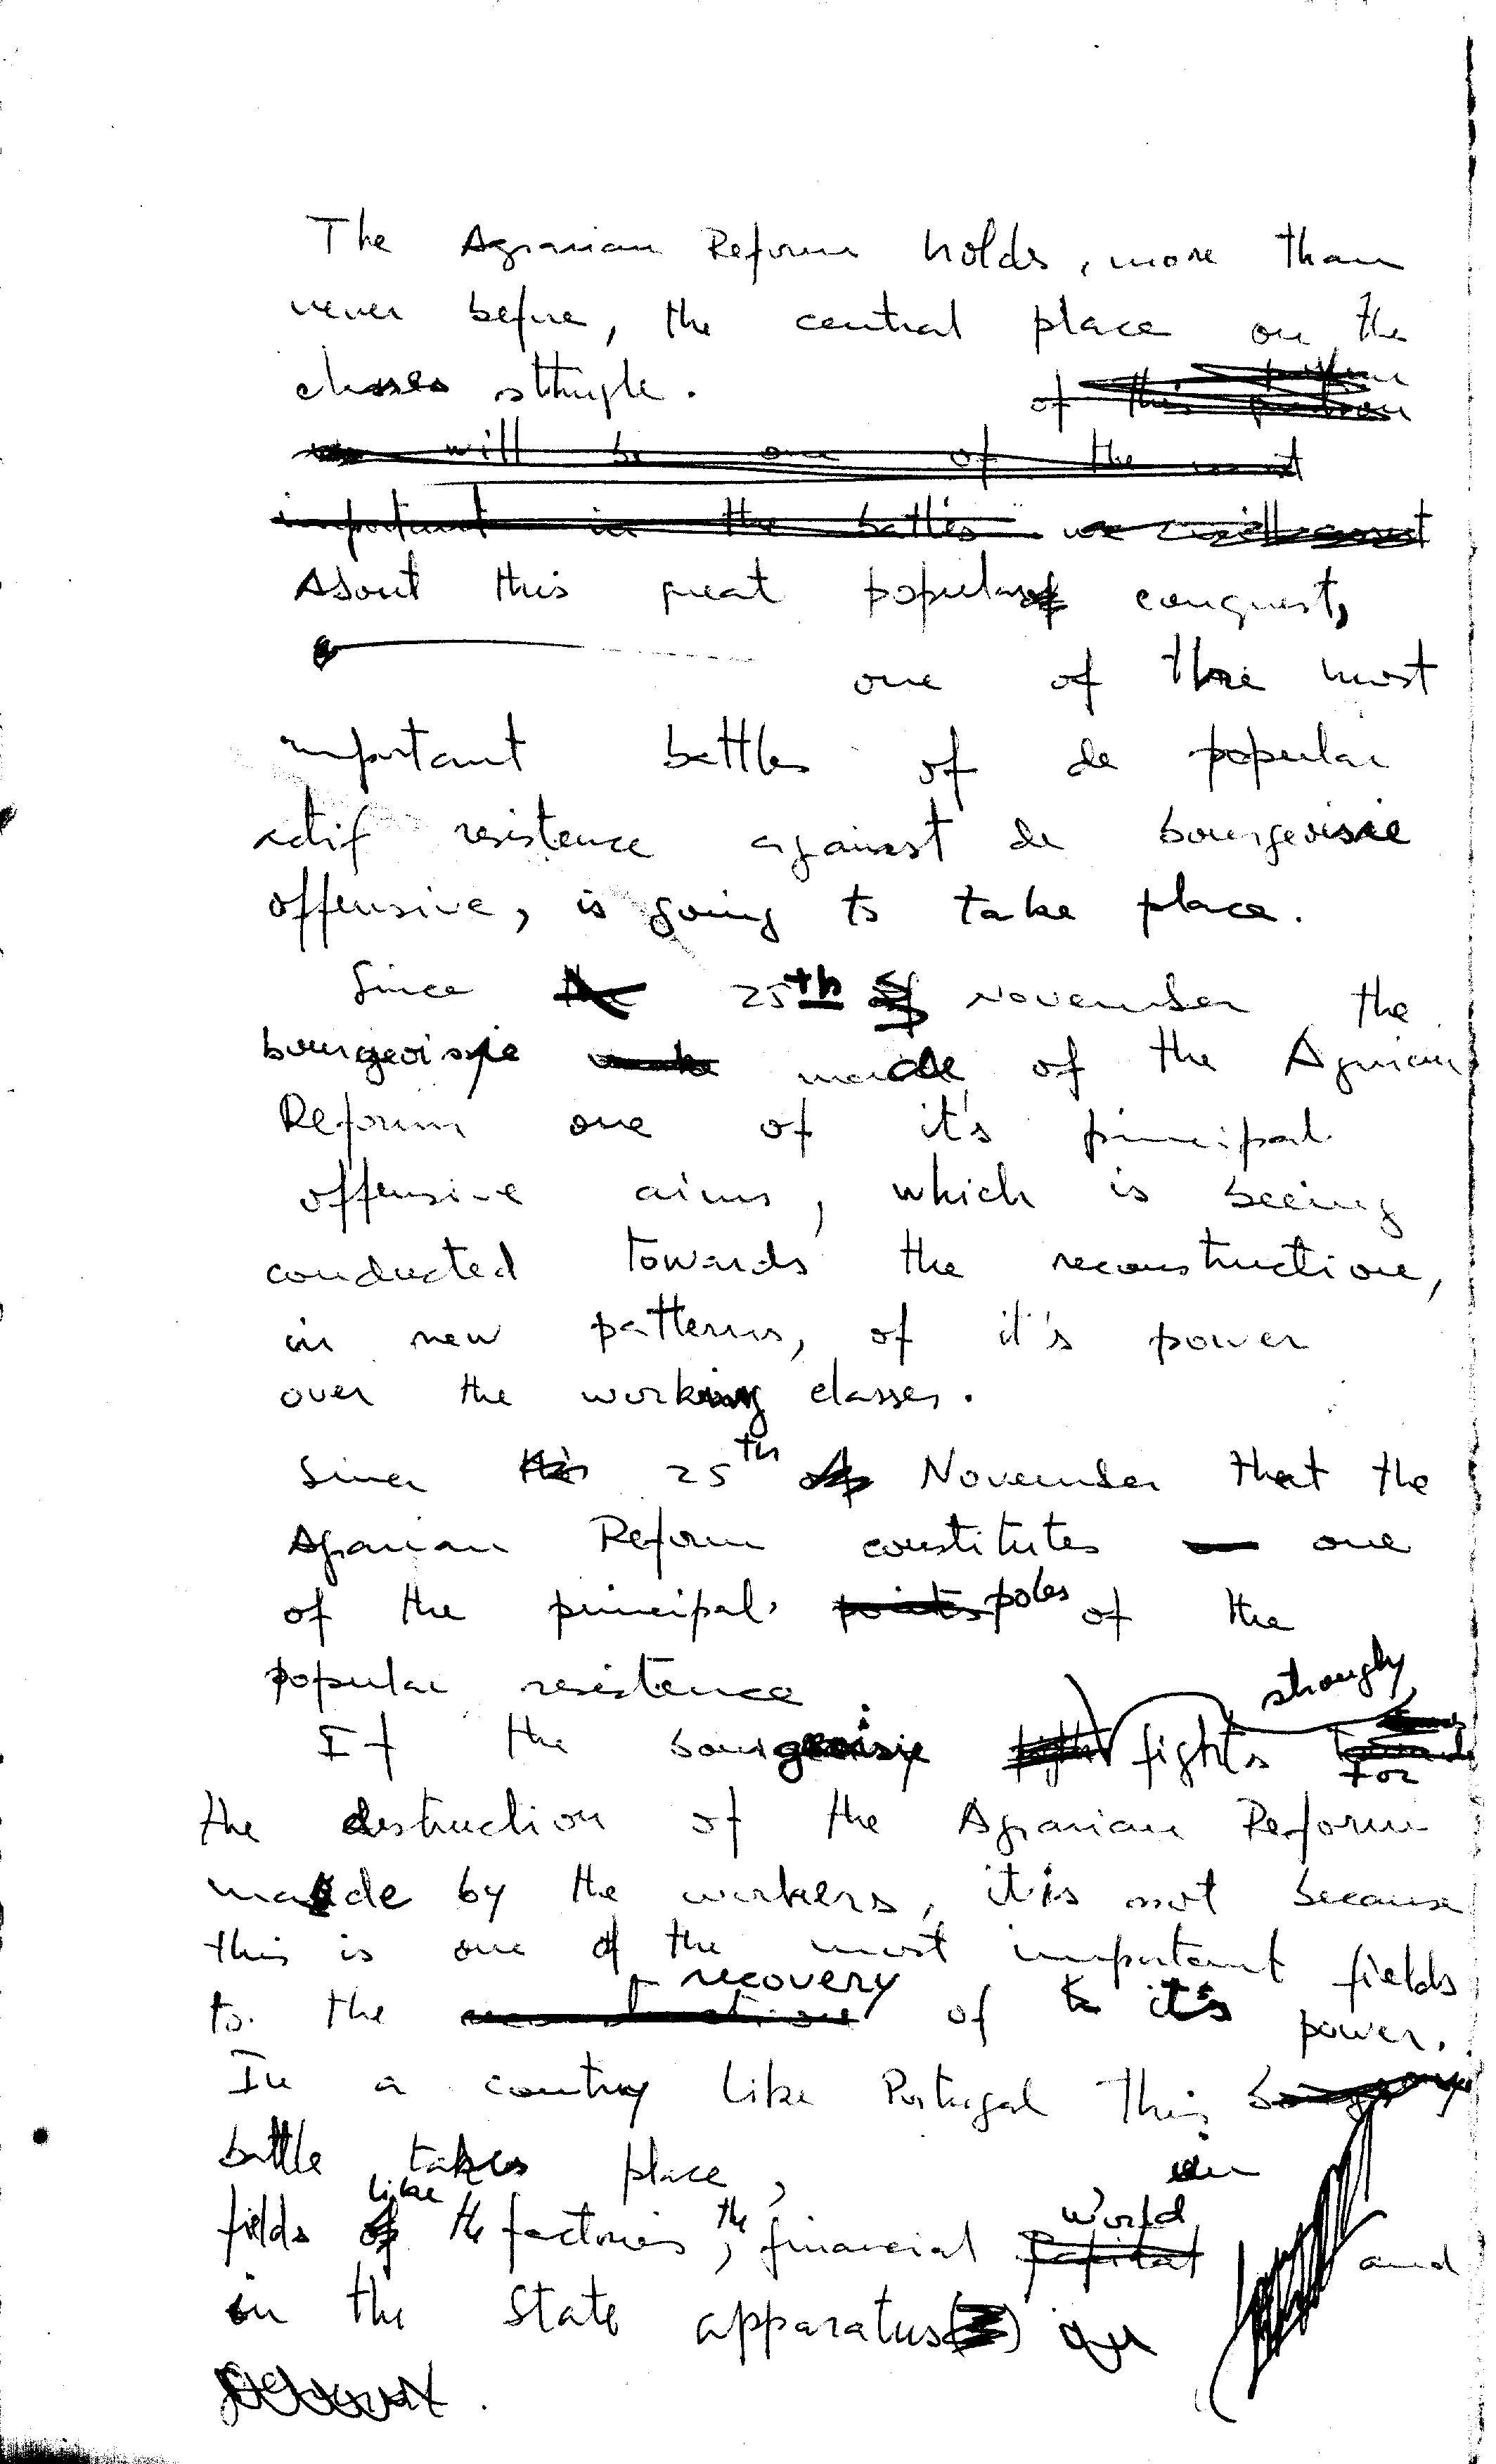 The Agrarian Reform holds, more than
never before, the central place on the
classes sttrugle. of this
will be one of the most
important in the battles we will
About this great popular conquest,
one of the most
important battles of de popular
actif resistence against de bourgeoisie
offensive, is going to take place.
Since the 25th of November the
bourgeoisie made of the Agrarian
Reform one of it's principal
offensive aims, which is beeing
conducted towards the reconstruction,
in new patterns, of it's power
over the working classes.
Since 25th of November that the
Agrarian Reform constitutes one
of the principal points poles of the
popular resistence.
strongly
If the bourgeoisie fights for
the destruction of the Agrarian Reform
made by the workers, it is not because
this is one of the most important fields
recovery
to the of it's power.
In a country like Portugal this
battle takes place, in
like the world
fields of the factories, financial capital and
in the State apparatus